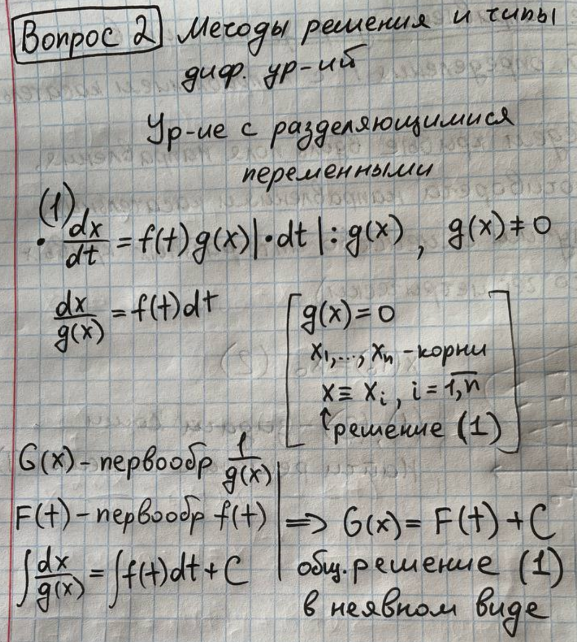 Вопрос 2 Методы решения и типы
диф. ур-ий
Ур-ие с разделяющимися
переменными
(1)
• dx/dt = f(t)g(x) | · dt | : g(x) , g(x) ≠ 0
dx/g(x) = f(t)dt
[ g(x) = 0
x₁,...,xₙ - корни
x ≡ xᵢ, i = 1,n̅
↑ решение (1) ]
G(x) - первообр 1/g(x)
F(t) - первообр f(t)
∫ dx/g(x) = ∫ f(t)dt + C
⇒ G(x) = F(t) + C
общ. решение (1)
в неявном виде